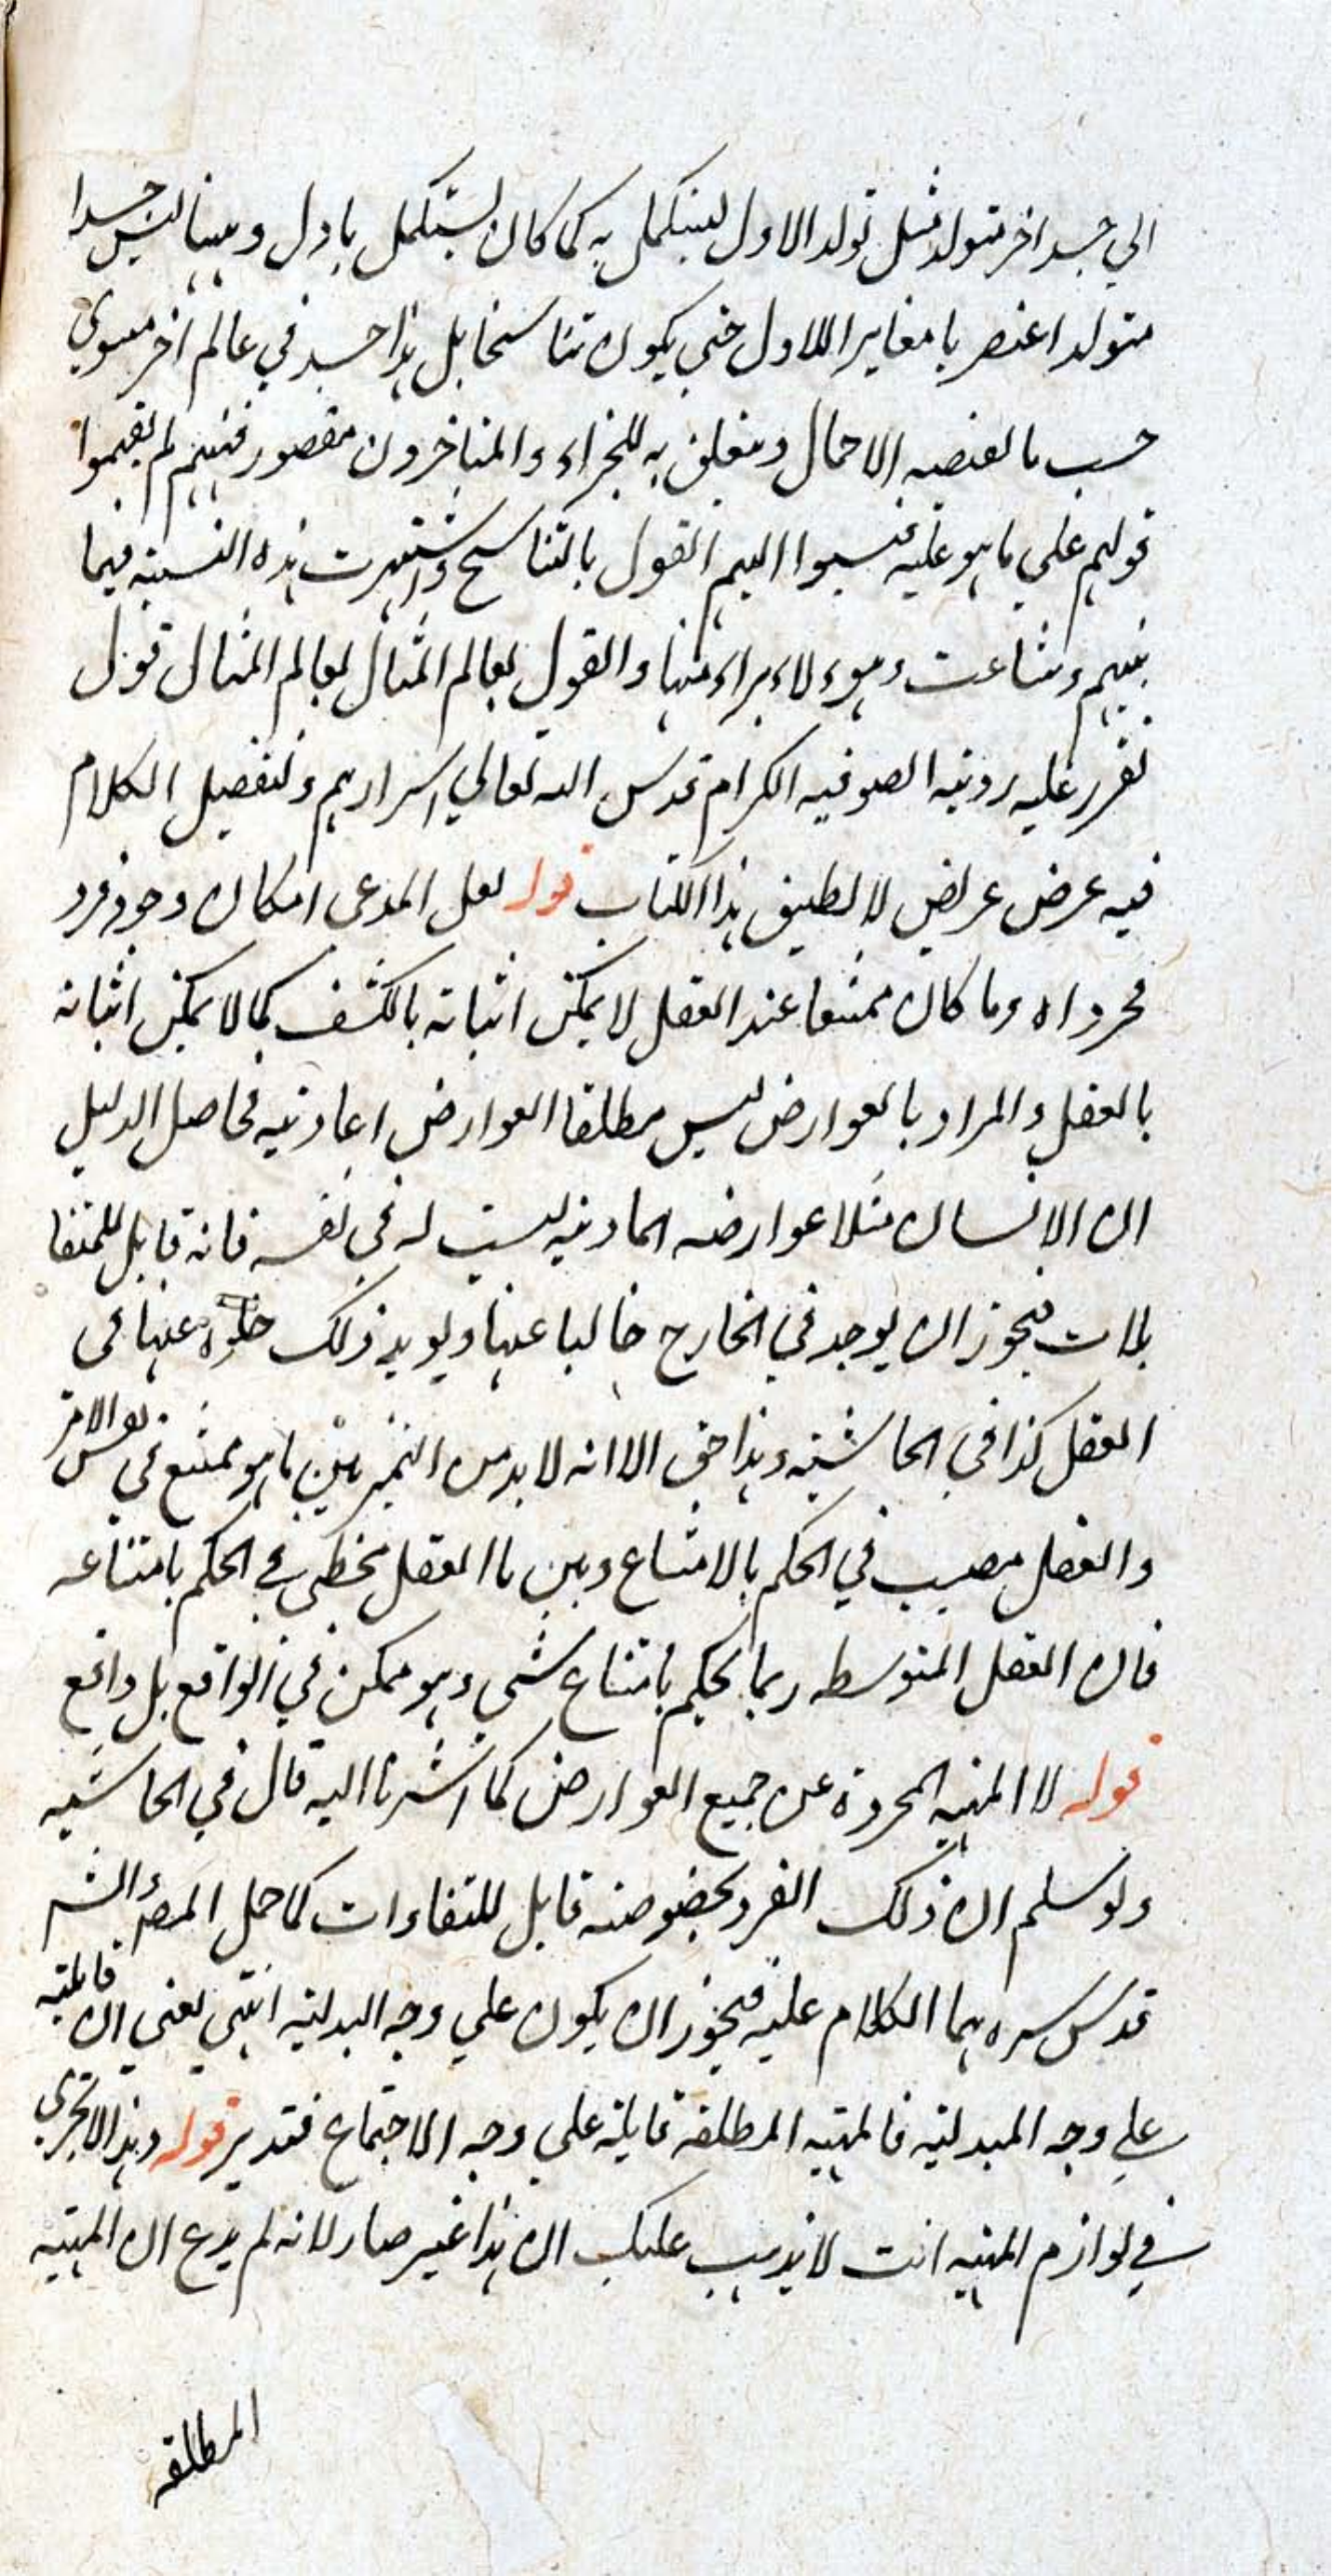 الي جسد اخر متولد مثل تولد الاول ليستكمل به كما كان يستكمل باول وههنا ليس جسدا
متولدا عنصريا مغايرا للاول حتي يكون تناسخا بل هذا جسد في عالم اخر مسوي
حسب ما يقتضيه الاعمال ومتعلق به للجزاء والمتاخرون مقصور فهمهم لم يفهموا
قولهم علي ما هو عليه فنسبوا اليهم القول بالتناسخ واشتهرت هذه النسبة فيما
بينهم وشاعت وهوءلاء براء منها والقول بعالم المثال لعالم المثال قول
تقرر عليه روية الصوفيه الكرام قدس الله تعالي اسرارهم ولتفصيل الكلام
فيه عرض عريض لا يطيق هذا الكتاب قوله لعل المدعى امكان وجود فرد
مجرد اه وما كان ممتنعا عند العقل لا يمكن اثباته بالكشف كما لا يمكن اثباته
بالعقل والمراد بالعوارض ليس مطلقا العوارض اعادتيه فحاصل الدليل
ان الانسان مثلا عوارضه المادية ليست له في نفسه فانه قابل للمتقا
بلات فيجوز ان يوجد في الخارج خاليا عنها ويويد ذلك خلوه عنها في
العقل كذا في الحاشية وهذا حق الا انه لا بد من التميز بين ما هو ممتنع في نفس الامر
والعقل مصيب في الحكم بالامتناع وبين ما العقل مخطي في الحكم بامتناعه
فان العقل المتوسطه ربما يحكم بامتناع شي وهو ممكن في الواقع بل واقع
قوله لا المهية المجردة عن جميع العوارض كما اشرنا اليه قال في الحاشيه
ولو سلم ان ذلك الفرد بخصوصه قابل للتفاوات كما حمل المص الش
قدس سرهما الكلام عليه فيجوز ان يكون علي وجه البدلية انتهي يعني ان قابلية
علي وجه البدلية فالمهية المطلقة قابلة علي وجه الاجتماع فتدبر قوله وهذا لا يجري
في لوازم المهية انت لا يذهب عليك ان هذا غير صار لانه لم يدع ان المهية
المطلقه